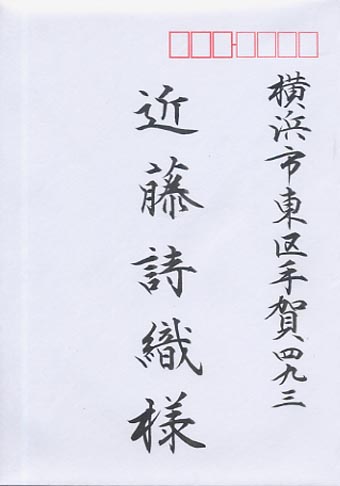 横浜市東区手賀四九三
近藤詩織様